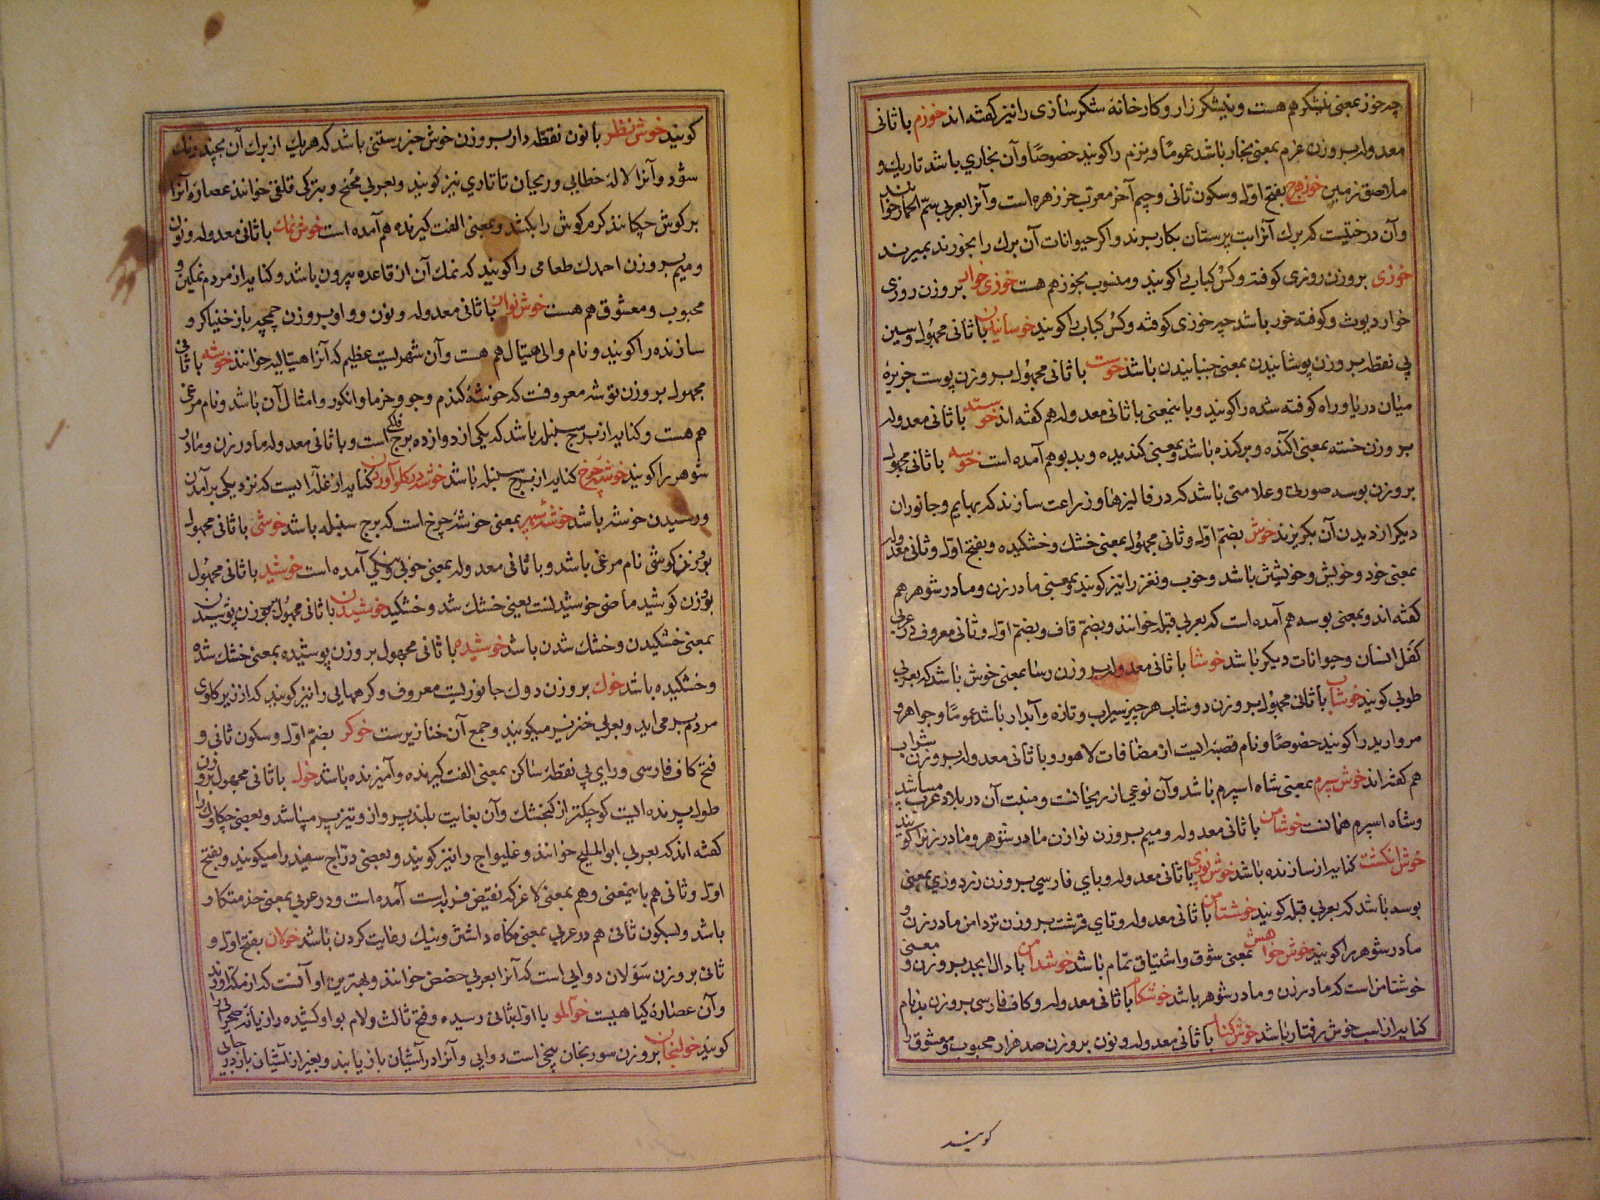 چه خوز بمعنی نیشکر هم هست و نیشکر زار و کارخانهٔ شکر سازی را نیز کفته اند خوزم با ثانی
معدوله بر وزن عزم بمعنی بخار باشد عموما و بزم را کویند خصوصا و آن بخاری باشد تاریك و
ملاصق زمین خوزهرج بفتح اول و سکون ثانی و جیم آخر معرب خرزهره است و آنرا بعربی سم الحمار خوانند
و آن درختیست که برك آنرا بپرستان بکار برند و اکر حیوانات آن برك را بخورند بمیرند
خوزی بر وزن روزی کوفته و کس کباب را کویند و منسوب بخوز هم هست خوزی خوار بر وزن روزی
خوار دیوث و کوفته خور باشد چه خوزی کوفته و کس کباب را کویند خوسانیدن با ثانی مجهول و سین
بی نقطه بر وزن پوشانیدن بمعنی جنبانیدن باشد خوست با ثانی مجهول بر وزن پوست جزیرهٔ
میان دریا و راه کوفته شده را کویند و باینمعنی با ثانی معدوله هم کفته اند خوسته با ثانی معدوله
بر وزن خسته بمعنی آکنده و برکنده باشد و بمعنی کندیده و بدبو هم آمده است خوسه با ثانی مجهول
بر وزن بوسه صورتی و علامتی باشد که در فالیزها و زراعت سازند که بهایم و جانوران
دیکر از دیدن آن بکریزند خوش بضم اول و ثانی مجهول بمعنی خشك و خشکیده و بفتح اول و ثانی معدوله
بمعنی خود و خویش و خویشتن باشد و خوب و نغز را نیز کویند و بمعنی مادر زن و مادر شوهر هم
کفته اند و بمعنی بوسه هم آمده است که بعربی قبله خوانند و بضم قاف و بضم اول و ثانی معروف در عربی
کفل انسان و حیوانات دیکر باشد خوشا با ثانی معدوله بر وزن رسا بمعنی خوش باشد که بعربی
طوبی کویند خوشاب با ثانی مجهول بر وزن دوشاب هر چیز سیراب و تازه و آبدار باشد عموما و جواهر و
مروارید را کویند خصوصا و نام قصبه ایست از مضافات لاهور و با ثانی معدوله بر وزن شراب
هم کفته اند خوش سپرم بمعنی شاه اسپرم باشد و آن نوعی از ریحانست و منبت آن در بلاد عرب میباشد
و شاه اسپرم همانست خوشامن با ثانی معدوله و میم بر وزن نوازن مادر شوهر و مادر زنرا کویند
خوش انکشت کنایه از سازنده باشد خوش نوزی با ثانی معدوله و بای فارسی بر وزن زردوزی بمعنی
بوسه باشد که بعربی قبله کویند خوشتامن با ثانی معدوله و تای قرشت بر وزن تردامن مادر زن و
مادر شوهر را کویند خوش خواهش بمعنی شوق و اشتیاق تمام باشد خوشدامن با دال ابجد بر وزن و معنی
خوشتامن است که مادر زن و مادر شوهر باشد خوشکام با ثانی معدوله و کاف فارسی بر وزن بدنام
کنایه از اسب خوش رفتار باشد خوش کنار با ثانی معدوله و نون بر وزن صد هزار محبوب و معشوق را
کویند
کویند خوش نظر با نون نقطه دار بر وزن خوش خبر رستنی باشد که هر یك از برك آن بچند رنك
شود و آنرا لاله خطایی و ریحان تاتاری نیز کویند و بعربی مخنج و بترکی قلقی خوانند عصارهٔ آنرا
بر کوش چکانند کرم کوش را بکشد و بمعنی الفت کیرنده هم آمده است خوش نمك با ثانی معدوله و نون
و میم بر وزن احدك طعامی را کویند که نمك آن از قاعده بیرون باشد و کنایه از مردم نمکین و
محبوب و معشوق هم هست خوش نواز با ثانی معدوله و نون و واو بر وزن چمچه باز خنیاکر و
سازنده را کویند و نام والی هیتال هم هست و آن شهریست عظیم که آنرا هیتالیه خوانند خوشه با ثانی
مجهول بر وزن توشه معروفست که خوشهٔ کندم و جو و خرما و انکور و امثال آن باشد و نام مرغی
هم هست و کنایه از برج سنبله باشد که یکی از دوازده برج فلك است و با ثانی معدوله مادر زن و مادر
شوهر را کویند خوشه چرخ کنایه از برج سنبله باشد خوشه در کلو آوردن کنایه از غله ایست که نزدیکی بر آمدن
و رسیدن خوشه باشد خوشه سپهر بمعنی خوشهٔ چرخ است که برج سنبله باشد خوشی با ثانی مجهول
بوزن کوشی نام مرغی باشد و با ثانی معدوله بمعنی خوبی و نیکی آمده است خوشید با ثانی مجهول
بوزن کوشید ماضی خوشیدنست یعنی خشك شد و خشکید خوشیدن با ثانی مجهول بوزن پوشیدن
بمعنی خشکیدن و خشك شدن باشد خوشیده با ثانی مجهول بر وزن پوشیده بمعنی خشك شده
و خشکیده باشد خوك بر وزن دوك جانوریست معروف و کرههایی را نیز کویند که از زیر کلوی
مردم بر می آید و بعربی خنزیر میکویند و جمع آن خنازیر است خوکر بضم اول و سکون ثانی و
فتح کاف فارسی و رای بی نقطهٔ ساکن بمعنی الفت کیرنده و آمیزنده باشد خول با ثانی مجهول بر وزن
طول پرنده ایست کوچکتر از کنجشك و آن بغایت بلند پرواز و تیز پر میباشد و بعضی چکاوك
کفته اند که بعربی ابوالملیح خوانند و غلیواج را نیز کویند و بعضی دراج سفید را میکویند و بفتح
اول و ثانی هم باینمعنی و هم بمعنی لاغر که نقیض فربه است آمده است و در عربی بمعنی خدمتکار
باشد و بسکون ثانی هم در عربی بمعنی نکاه داشتن و نیك رعایت کردن باشد خولان بفتح اول و
ثانی بر وزن سولان دوایی است که آنرا بعربی حضض خوانند و بهترین او آنست که از مکه آورند
و آن عصارهٔ کیاهیست خوالمو با اول بثانی رسیده و فتح ثالث و لام بواو کشیده رازیانه صحرایی را
کویند خولنجان بر وزن سوریجان بیخی است دوایی و آنرا در آشیان باز یابند و بغیر از آشیان باز در جایی